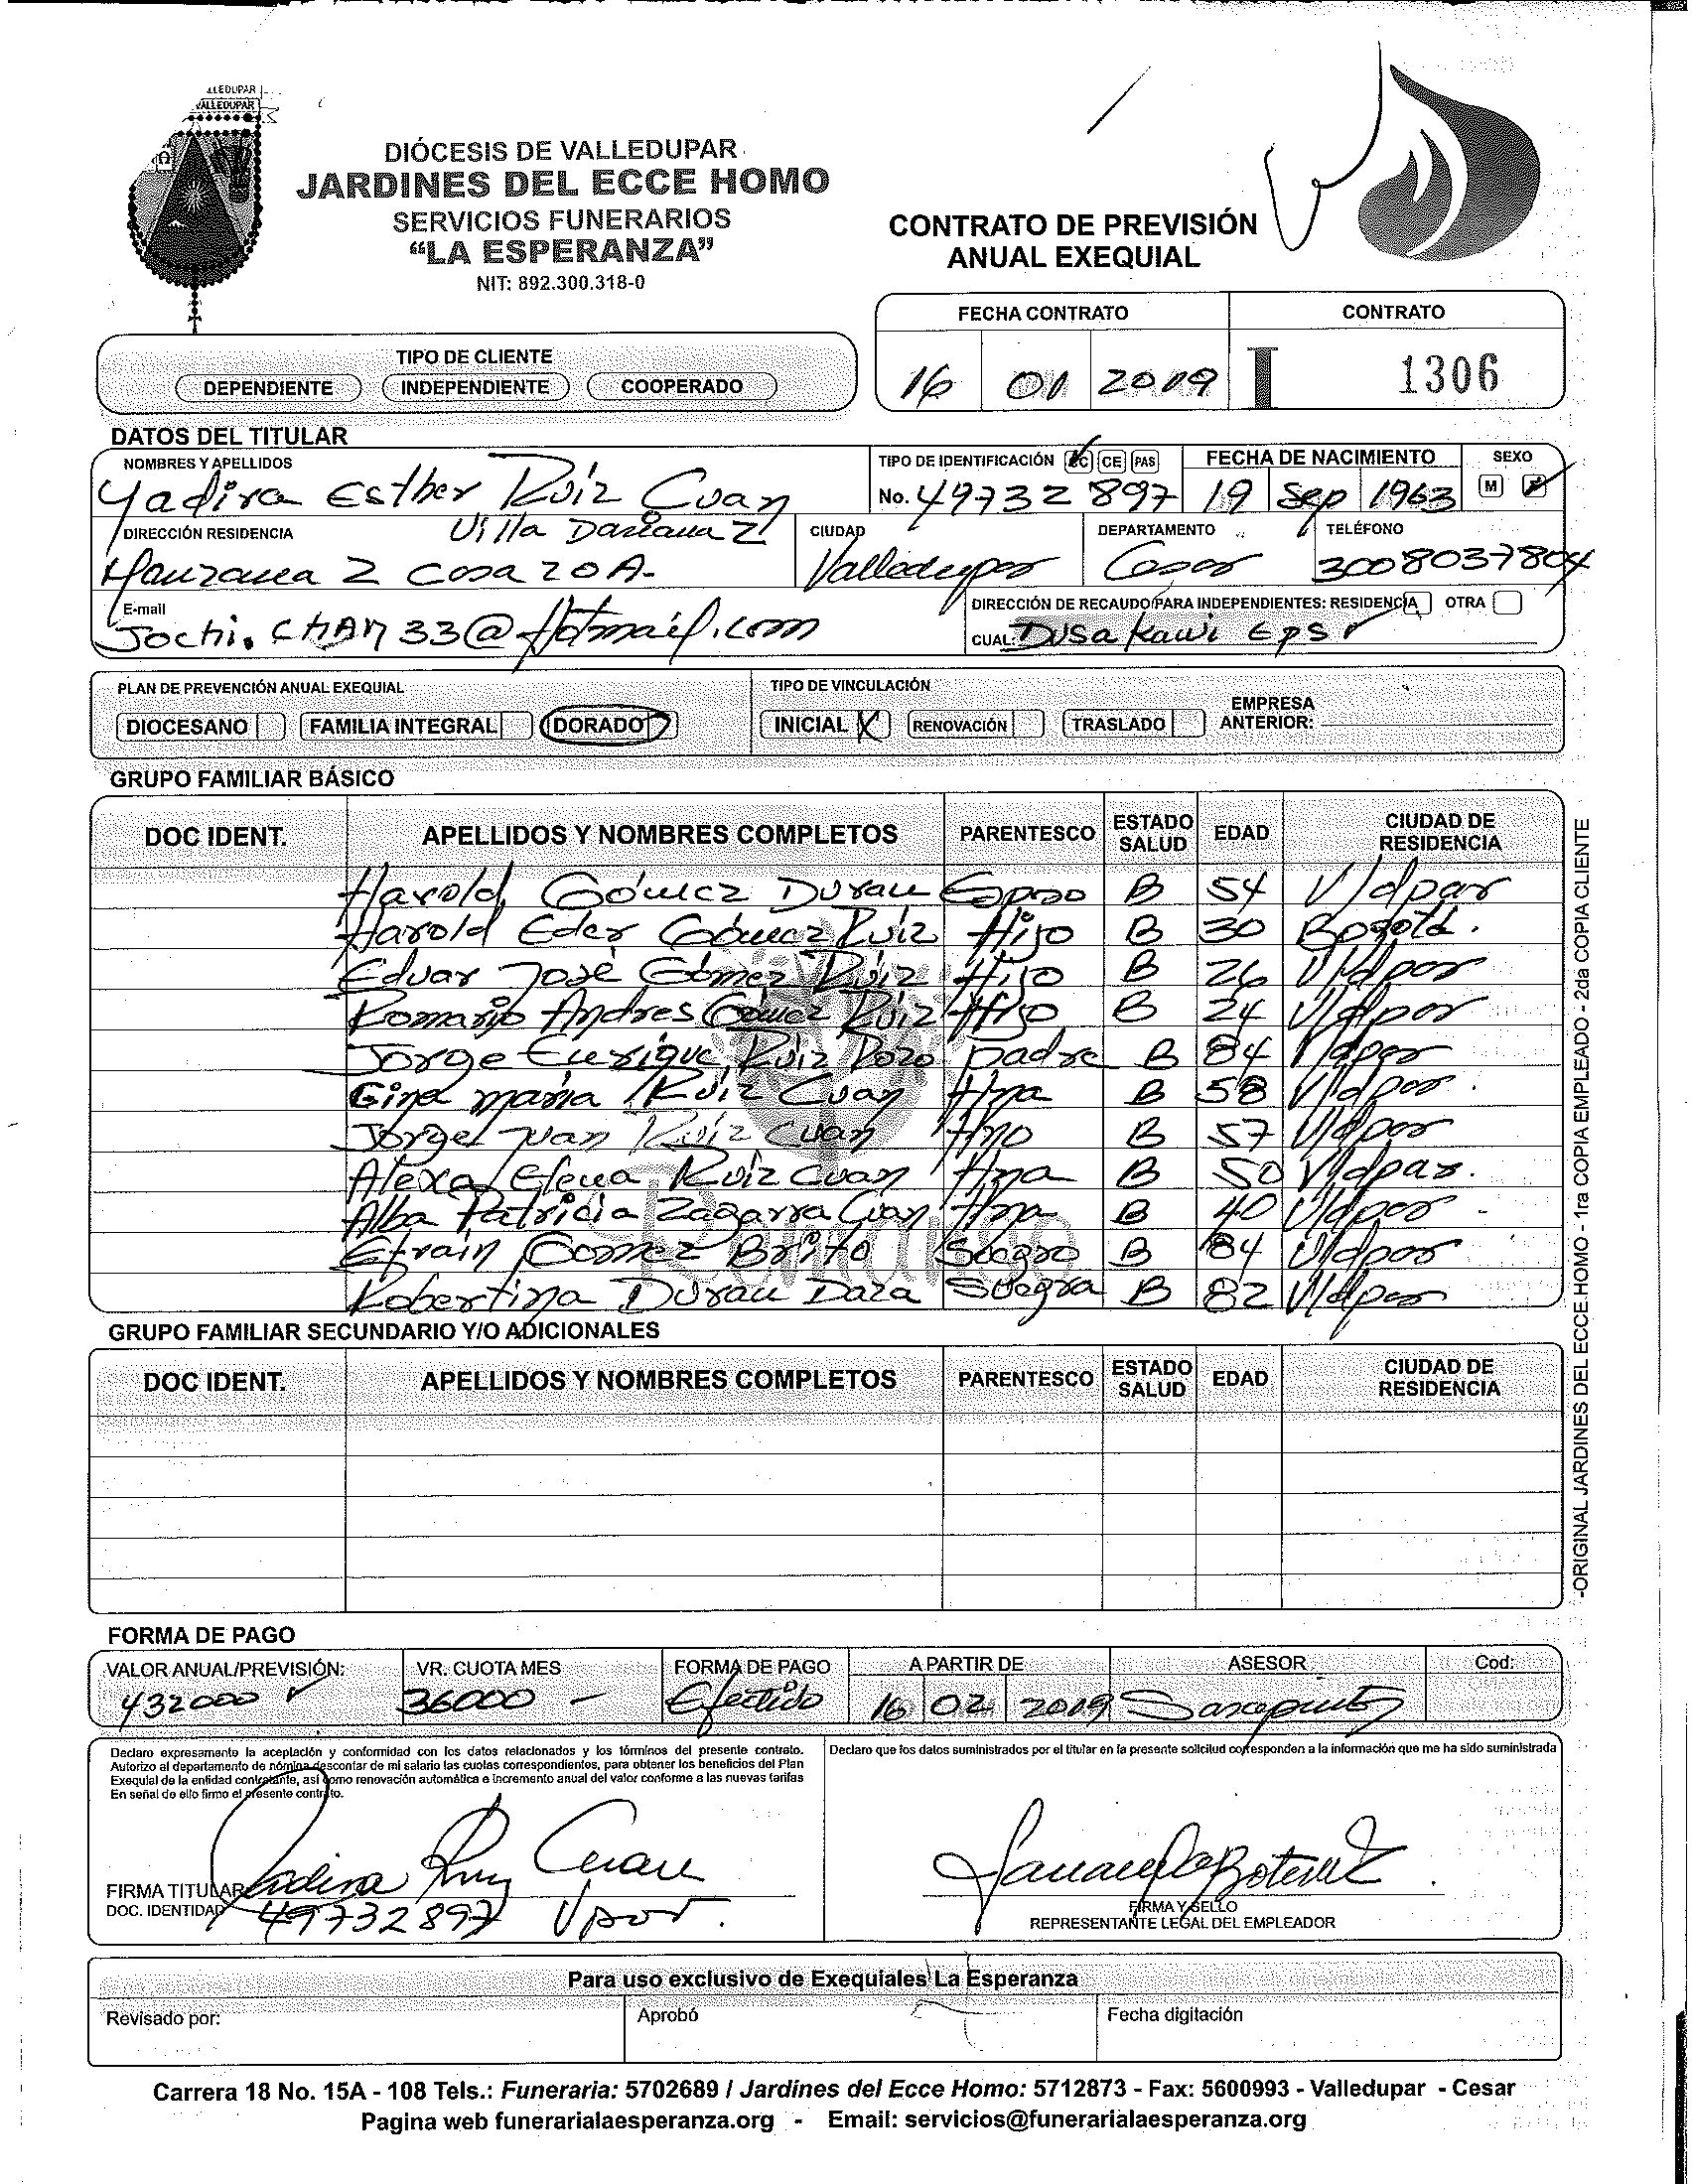 DIÓCESIS DE VALLEDUPAR
JARDINES DEL ECCE HOMO
SERVICIOS FUNERARIOS
“LA ESPERANZA”
NIT: 892.300.318-0
CONTRATO DE PREVISIÓN
ANUAL EXEQUIAL
FECHA CONTRATO CONTRATO
16 01 2019 I 1306
TIPO DE CLIENTE
DEPENDIENTE INDEPENDIENTE COOPERADO
DATOS DEL TITULAR
NOMBRES Y APELLIDOS TIPO DE IDENTIFICACIÓN CC CE PAS FECHA DE NACIMIENTO SEXO
Yadira Esther Ruiz Cuan No. 49732897 19 Sep 1963 M F
DIRECCIÓN RESIDENCIA Villa Dariana 2 CIUDAD DEPARTAMENTO TELÉFONO
Manzana 2 Casa 20A- Valledupar Cesar 3008037804
E-mail DIRECCIÓN DE RECAUDO PARA INDEPENDIENTES: RESIDENCIA OTRA
Jochi.CHAM33@Hotmail.com CUAL: Dusakawi EPS
PLAN DE PREVENCIÓN ANUAL EXEQUIAL TIPO DE VINCULACIÓN
DIOCESANO FAMILIA INTEGRAL DORADO INICIAL X RENOVACIÓN TRASLADO EMPRESA ANTERIOR:
GRUPO FAMILIAR BÁSICO
DOC IDENT. APELLIDOS Y NOMBRES COMPLETOS PARENTESCO ESTADO SALUD EDAD CIUDAD DE RESIDENCIA
Harold Gómez Duran Esposo B 54 Vldpar
Harold Eder Gómez Ruiz Hijo B 30 Bogotá.
Eduar José Gómez Ruiz Hijo B 26 Vldpar
Romario Andres Gómez Ruiz Hijo B 24 Vldpar
Jorge Enrique Ruiz Pozo padre B 84 Vldpar
Gina maria Ruiz Cuan Hna B 58 Vldpar.
Jorge Juan Ruiz Cuan Hno B 57 Vldpar
Alexa Elena Ruiz Cuan Hna B 50 Vldpar.
Alba Patricia Zagarra Cuan Hna B 40 Vldpar
Efrain Gomez Brito Suegro B 84 Vldpar
Robertina Duran Daza Suegra B 82 Vldpar
GRUPO FAMILIAR SECUNDARIO Y/O ADICIONALES
DOC IDENT. APELLIDOS Y NOMBRES COMPLETOS PARENTESCO ESTADO SALUD EDAD CIUDAD DE RESIDENCIA
FORMA DE PAGO
VALOR ANUAL/PREVISIÓN: VR. CUOTA MES FORMA DE PAGO A PARTIR DE ASESOR Cod:
432000 36000 - Efectivo 16 02 2019
Declaro expresamente la aceptación y conformidad con los datos relacionados y los términos del presente contrato.
Autorizo al departamento de nómina descontar de mi salario las cuotas correspondientes, para obtener los beneficios del Plan
Exequial de la entidad contratante, así como renovación automática e incremento anual del valor conforme a las nuevas tarifas
En señal de ello firmo el presente contrato.
Declaro que los datos suministrados por el titular en la presente solicitud corresponden a la información que me ha sido suministrada
FIRMA TITULAR Yadira Ruiz Cuan
DOC. IDENTIDAD 49732897 Vpar.
FIRMA Y SELLO
REPRESENTANTE LEGAL DEL EMPLEADOR
Para uso exclusivo de Exequiales La Esperanza
Revisado por: Aprobó Fecha digitación
Carrera 18 No. 15A - 108 Tels.: Funeraria: 5702689 / Jardines del Ecce Homo: 5712873 - Fax: 5600993 - Valledupar - Cesar
Pagina web funerarialaesperanza.org - Email: servicios@funerarialaesperanza.org
-ORIGINAL JARDINES DEL ECCE HOMO - 1ra COPIA EMPLEADO - 2da COPIA CLIENTE